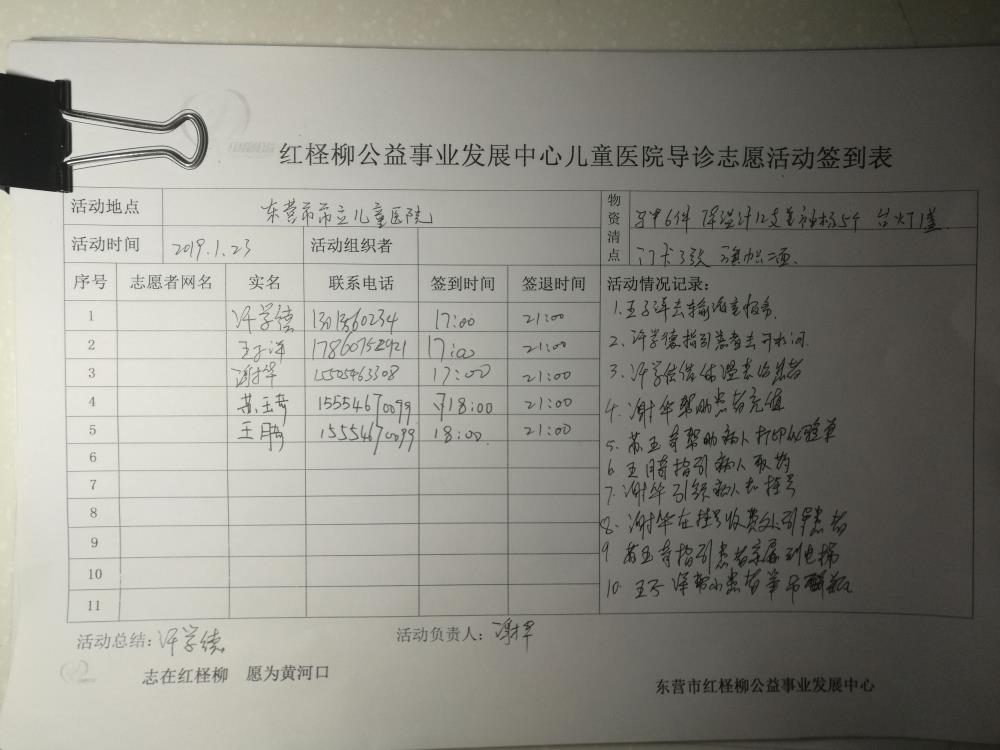 红柽柳公益事业发展中心儿童医院导诊志愿活动签到表
活动地点 东营市市立儿童医院 物资清点 6件 体温计12支 袖标5个 台灯1盏
活动时间 2019.1.23 活动组织者 门卡3张 旗帜二项
序号 志愿者网名 实名 联系电话 签到时间 签退时间 活动情况记录:
1 许学德 17:00 21:00 1.王子洋去输液室
2 王子洋 17860752921 17:00 21:00 2、许学德指引患者去开水间
3 谢华 15505463308 17:00 21:00 3、许学德借体温表给患者
4 苏玉奇 15554670099 18:00 21:00 4、谢华帮助患者充值
5 王腾 15554670099 18:00 21:00 5、苏玉奇帮助病人打印化验单
6 6 王腾指引病人取药
7 7、谢华引领病人去挂号
8 8、谢华在挂号收费处引导患者
9 9 苏玉奇指引患者家属到电梯
10 10、王子洋帮小患者举吊瓶
11
活动总结:许学德 活动负责人:谢华
志在红柽柳 愿为黄河口
东营市红柽柳公益事业发展中心